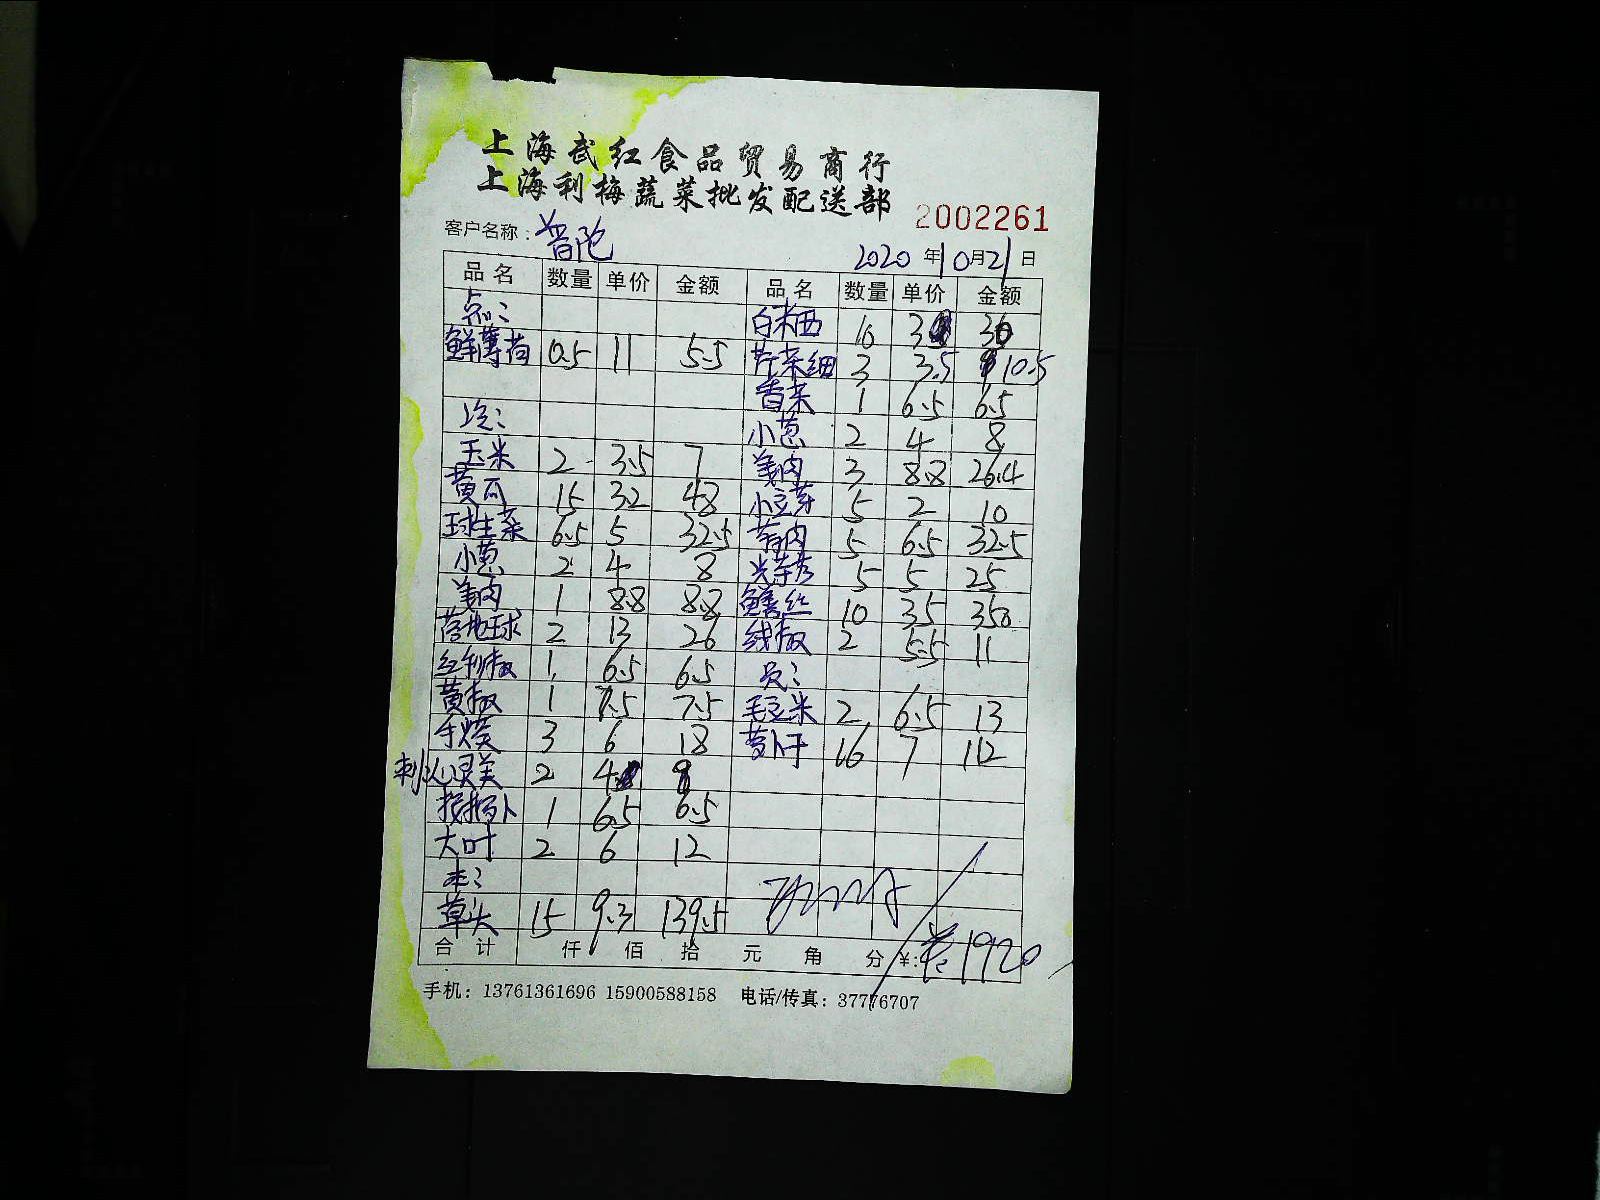 上海武红食品贸易商行
上海利梅蔬菜批发配送部
2002261
客户名称：普陀
2020年10月21日
品名 数量 单价 金额 品名 数量 单价 金额
点：
鲜薄荷 0.5 11 5.5
冷：
玉米 2 3.5 7
黄瓜 15 3.2 48
球生菜 6.5 5 32.5
小葱 2 4 8
姜肉 1 8.8 8.8
苦地球 2 13 26
红利椒 1 6.5 6.5
黄椒 1 7.5 7.5
手煲 3 6 18
刺：心灵美 2 4 8
1 6.5 6.5
大叶 2 6 12
草头 15 9.3 139.5
白米西 10 3 30
芹菜细 3 3.5 10.5
香菜 1 6.5 6.5
小葱 2 4 8
姜肉 3 8.8 26.4
小豆芽 5 2 10
蒜肉 5 6.5 32.5
5 5 25
鳝丝 10 35 350
线椒 2 5.5 11
员：
毛豆米 2 6.5 13
萝卜干 16 7 112
合计 仟 佰 拾 元 角 分 ¥: 1920
手机：13761361696 15900588158 电话/传真：37776707